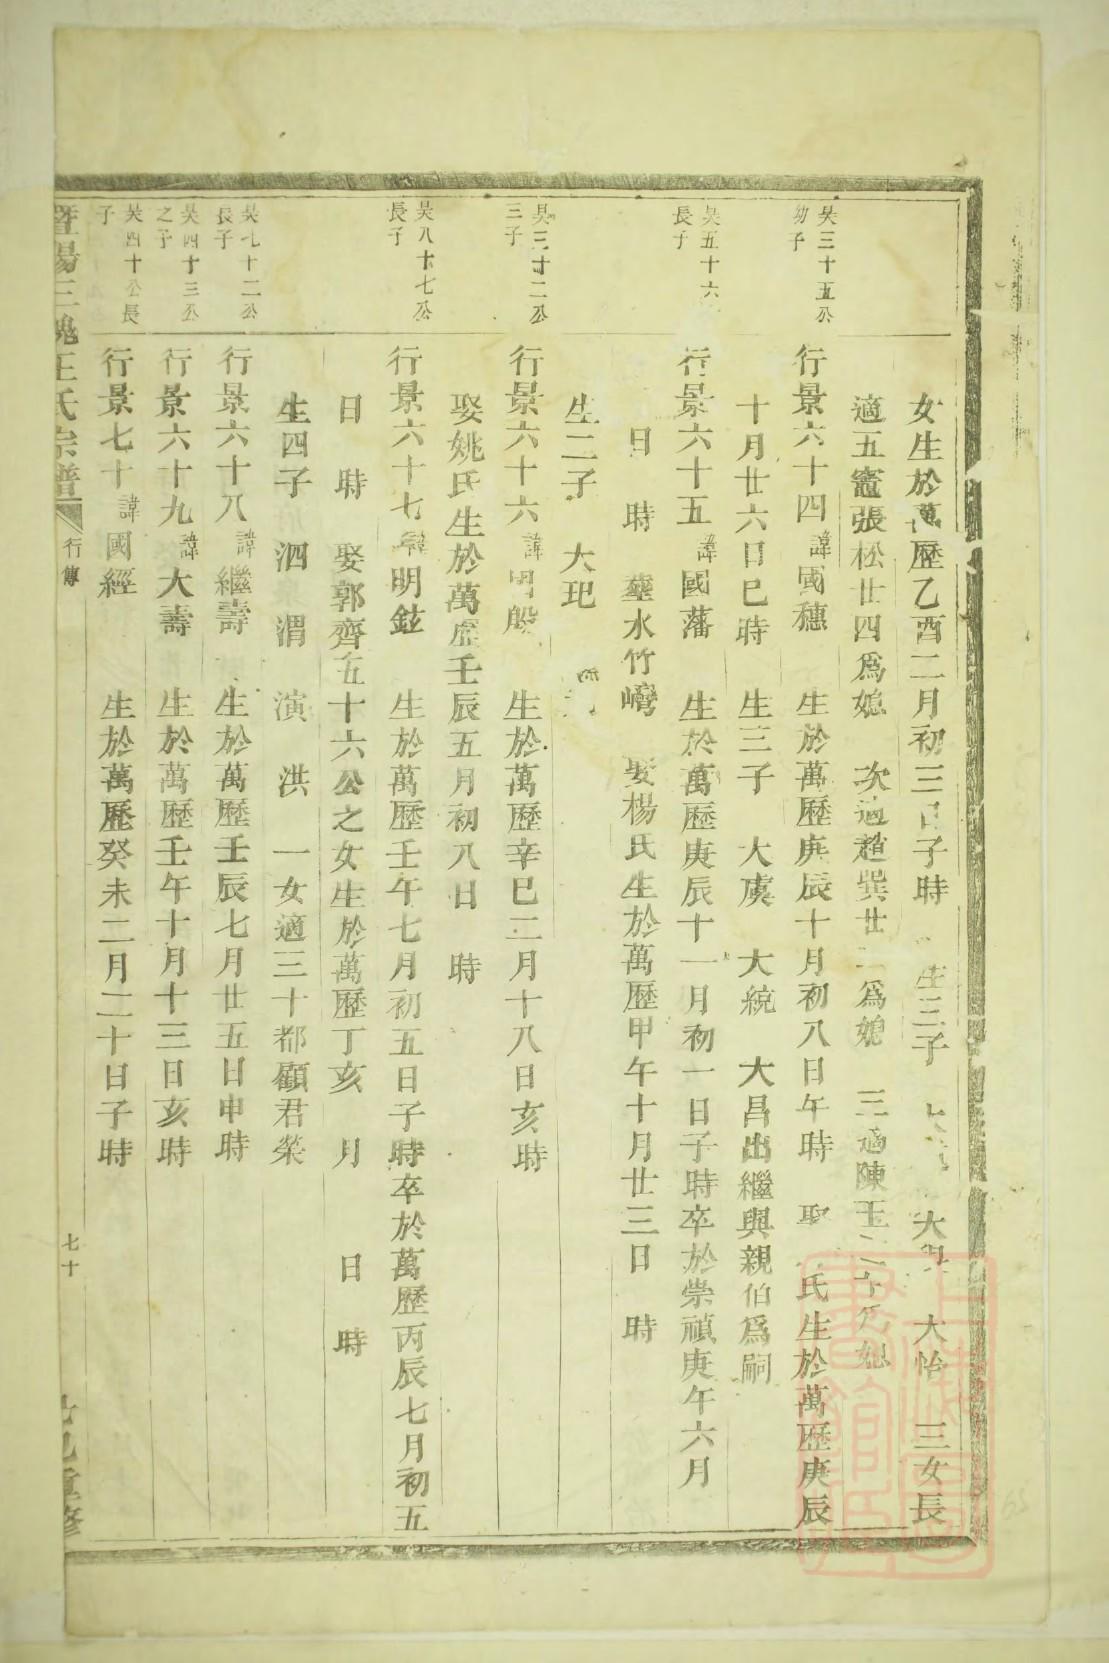 女生於萬歷乙酉二月初三日子時 生三子 大 大 大怡 三女長
適五竈張松廿四爲媳 次適趙巽廿二爲媳 三適陳玉
吴三十五公幼子
行景六十四 諱國穗 生於萬歷庚辰十月初八日午時 娶 氏生於萬歷庚辰
十月廿六日巳時 生三子 大虞 大統 大昌出繼與親伯爲嗣
吴五十六 長子
行景六十五 諱國藩 生於萬歷庚辰十一月初一日子時卒於崇禎庚午六月
日 時 塟水竹𡾋 娶楊氏生於萬歷甲午十月廿三日 時
生二子 大玘
吴三十二公三子
行景六十六 諱 生於萬歷辛巳二月十八日亥時
娶姚氏生於萬歷壬辰五月初八日 時
吴八十七公長子
行景六十七 諱明鉉 生於萬歷壬午七月初五日子時卒於萬歷丙辰七月初五
日 時 娶郭齊五十六公之女生於萬歷丁亥 月 日 時
生四子 泗 渭 演 洪 一女適三十都顧君榮
吴七十二公長子
行景六十八 諱繼壽 生於萬歷壬辰七月廿五日申時
吴四十三公之子
行景六十九 諱大壽 生於萬歷壬午十月十三日亥時
吴四十公長子
行景七十 諱國經 生於萬歷癸未二月二十日子時
暨陽三槐王氏宗譜 行傳 七十 重修